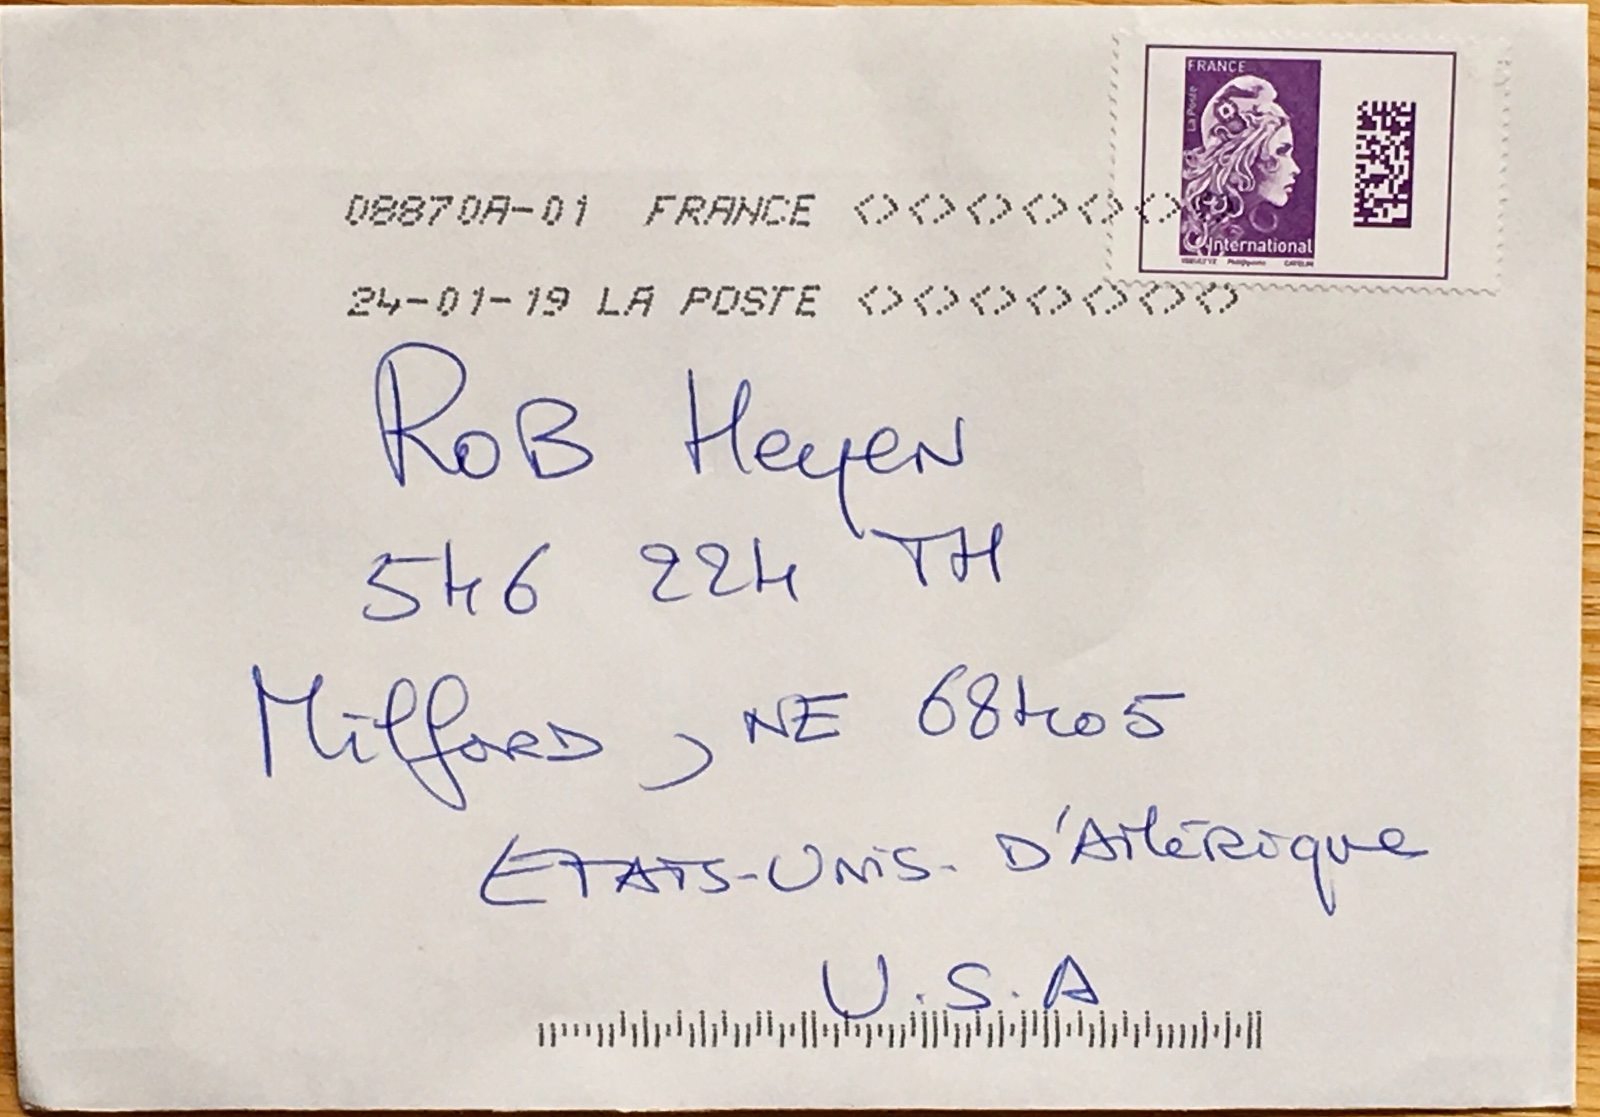 FRANCE
La Poste
International
08870A-01 FRANCE
24-01-19 LA POSTE
RoB Heyen
546 224 TH
Milford, NE 68405
ETATS-UNIS. D'AMéRique
U.S.A